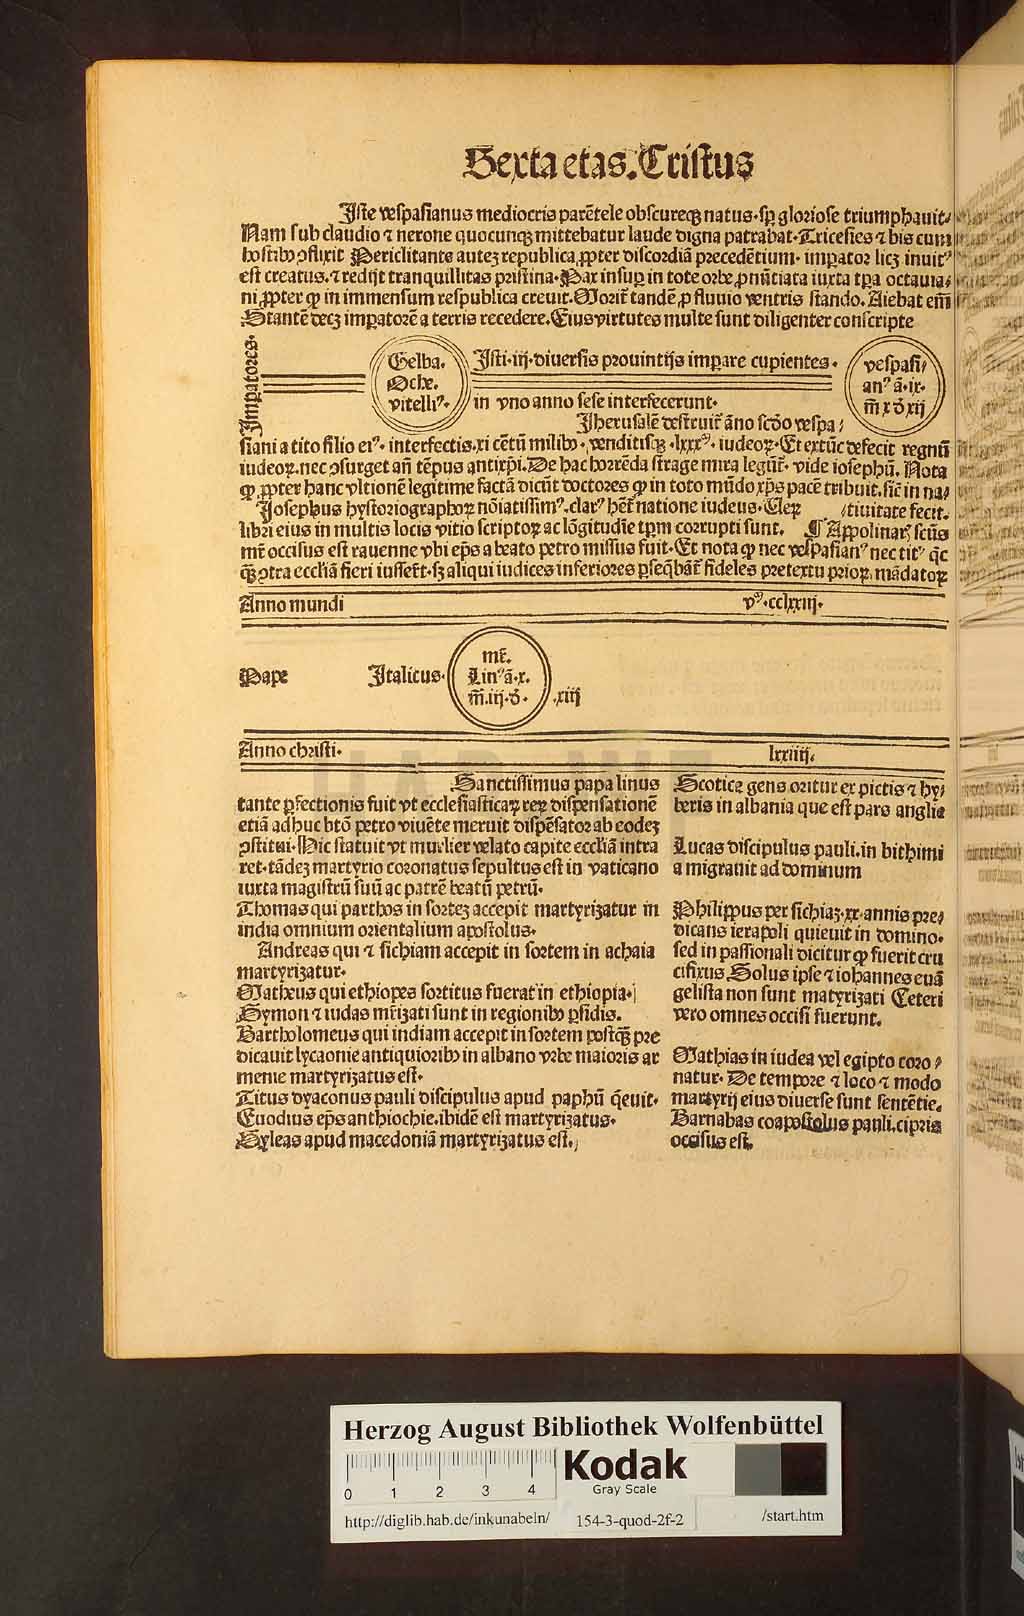 Sexta etas. Cristus
Iste vespasianus mediocris parētele obscureqꝫ natus. sꝑ gloriose triumphauit⸗
Nam sub claudio ⁊ nerone quocunqꝫ mittebatur laude digna patrabat. Tricesies ⁊ bis cum
hostibꝰ ↄflixit Periclitante autez republica ꝓpter discordiā precedētium. imꝑator licꝫ inuitꝰ
est creatus. ⁊ redijt tranquillitas pristina. Pax insuꝑ in tote orbe ꝓnūtiata iuxta tꝑa octauia⸗
ni ꝓpter ꝙ in immensum respublica creuit. Morit᷑ tandē ꝓ fluuio ventris stando. Aiebat em̄
Stantē decꝫ imꝑatorē a terris recedere. Eius virtutes multe sunt diligenter conscripte
Imꝑatores.
Gelba.
Othe.
vitellꝰ.
Isti. iij. diuersis prouintijs imꝑare cupientes.
in vno anno sese interfecerunt.
vespasi⸗
anꝰ ā. ix.
m̄ x d̄ xij
Iherusalē destruit᷑ āno scḋo vespa⸗
siani a tito filio eiꝰ. interfectis. xi cētū milibꝰ. venditisqꝫ. lxxxᵐ. iudeoꝝ. Et extūc defecit regnū
iudeoꝝ. nec ↄsurget an̄ tēpus antixp̄i. De hac horrēda strage mira legūt᷑. vide iosephū. Nota
ꝙ ꝓpter hanc vltionē legitime factā dicūt doctores ꝙ in toto mūdo xp̄s pacē tribuit. sic̄ in na⸗
Iosephus hystoriographoꝝ nōiatissimꝰ. clarꝰ het᷑ natione iudeus. Uerꝫ ⸗tiuitate fecit.
libri eius in multis locis vitio scriptoꝝ ac lōgitudīe tꝑm corrupti sunt. ¶ Appolinarꝭ scūs
mr̄ occisus est rauenne vbi ep̄s a beato petro missus fuit. Et nota ꝙ nec vespasianꝰ nec titꝰ qͥc
qꝫ ↄtra eccl̄iā fieri iusser̄t. sꝫ aliqui iudices inferiores ꝑseqbāt᷑ fideles pretextu prioꝝ mādatoꝝ
Anno mundi vᵐ. cclxxiij.
Pape Italicus.
mr̄.
Linꝰ ā. x.
m̄. iij. d̄.
.xiij
Anno christi. lxxiiij.
Sanctissimus papa linus
tante ꝑfectionis fuit vt ecclesiasticaꝝ reꝝ dispensationē
etiā adhuc btō petro viuēte meruit dispēsator ab eodeꝫ
ↄstitui. Hic statuit vt mulier velato capite eccl̄iā intra
ret. tādeꝫ martyrio coronatus sepultus est in vaticano
iuxta magistrū suū ac patrē beatū petrū.
Thomas qui parthos in sorteꝫ accepit martyrizatur in
india omnium orientalium apostolus.
Andreas qui ⁊ sichiam accepit in sortem in achaia
martyrizatur.
Matheus qui ethiopes sortitus fuerat in ethiopia.
Symon ⁊ iudas mr̄izati sunt in regionibꝰ ꝑsidis.
Bartholomeus qui indiam accepit in sortem postqꝫ pre
dicauit lycaonie antiquioribꝰ in albano vrbe maioris ar
menie martyrizatus est.
Titus dyaconus pauli discipulus apud paphū qͥeuit.
Euodius ep̄s anthiochie. ibidē est martyrizatus.
Syleas apud macedoniā martyrizatus est.
Scotice gens oritur ex pictis ⁊ hy⸗
beris in albania que est pars anglie
Lucas discipulus pauli. in bithimi
a migrauit ad dominum
Philippus per sichiaꝫ. xx. annis pre⸗
dicans ierapoli quieuit in domino.
sed in passionali dicitur ꝙ fuerit cru
cifixus. Solus ipse ⁊ iohannes euā
gelista non sunt matyrizati Ceteri
vero omnes occisi fuerunt.
Mathias in iudea vel egipto coro⸗
natur. De tempore ⁊ loco ⁊ modo
martyrij eius diuerse sunt sentētie.
Barnabas coapostolus pauli. cipris
occisus est.
Herzog August Bibliothek Wolfenbüttel
0 1 2 3 4
Kodak
Gray Scale
http://diglib.hab.de/inkunabeln/ 154-3-quod-2f-2 /start.htm